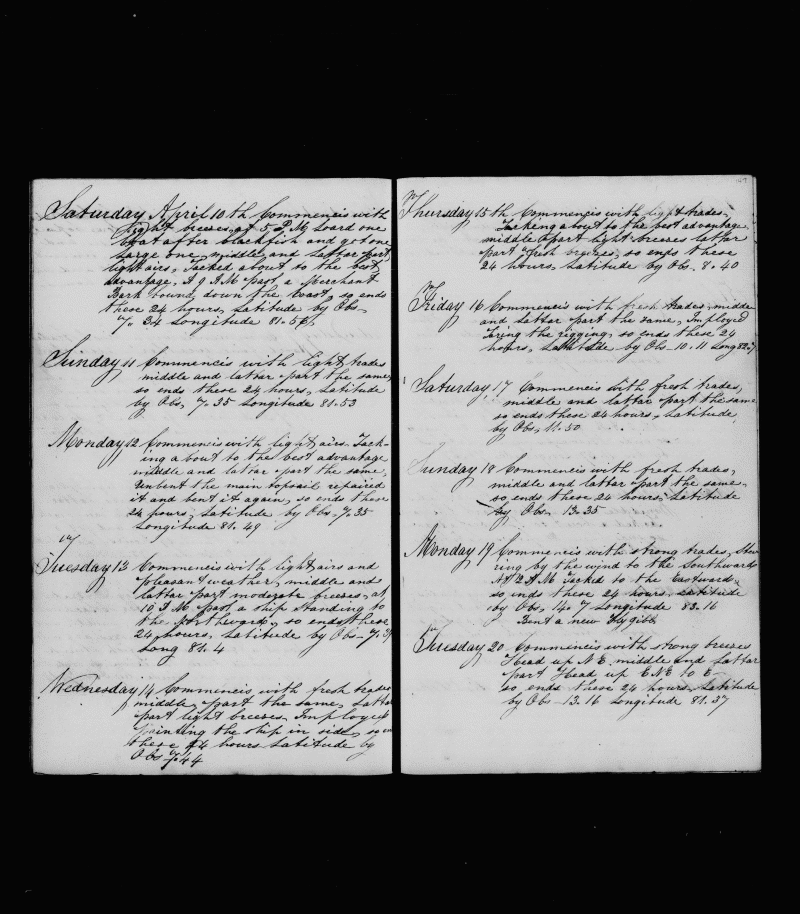 Saturday April 10th Commencis with
light breezes, at 5 P M Loard one
boat after blackfish and got one
large one, middle and lattar part
light airs, Tacked about to the best
advantage, A 9 A M past a merchant
Bark bound down the Coast, so ends
these 24 hours, Latitude by Obs
7. 34 Longitude 81.56
Sunday 11 Commencis with light trades
middle and lattar part the same,
so ends these 24 hours, Latitude
by Obs, 7.35 Longitude 81.53
Monday 12 Commencis with light airs. Tack-
ing about to the best advantage
middle and lattar part the same,
Unbent the main topsail repaired
it and bent it again, so ends these
24 hours, Latitude by Obs, 7.35
Longitude 81.49
Tuesday 13 Commencis with light airs and
pleasant weather, middle and
lattar part moderate breezes, at
10 A M past a ship standing to
the Northward, so ends these
24 hours, Latitude by Obs- 7.
Long 81.4
Wednesday 14 Commencis with fresh trades
middle part the same, Lattar
part light breezes. Imployed
painting the ship in side, so en
these 24 hours Latitude by
Obs 7.44
Thursday 15th Commencis with light trades,
Tacking about to the best advantage
middle part light breezes lattar
part fresh breezes, so ends these
24 hours, Latitude by Obs. 8.40
Friday 16 Commencis with fresh trades, middle
and lattar part the same, Imployed
Taring the rigging, so ends these 24
hours, Latitude by Obs 10.11 Long 82.
Saturday, 17 Commencis with fresh trades,
middle and lattar part the same
so ends these 24 hours, Latitude,
by Obs, 11.50
Sunday 18 Commencis with fresh trades,
middle and lattar part the same-
so ends these 24 hours, Latitude
by Obs- 13.35
Monday 19 Commencis with strong trades, Stea
ring by the wind to the Southwards
At 12 A M Tacked to the Eastward,
so ends these 24 hours, Latitude
by Obs, 14.7 Longitude 83.16
Bent a new Flygibb
Tuesday 20 Commencis with strong breezes
Head up N E. middle and Lattar
part Head up E N E to E-
so ends these 24 hours, Latitude
by Obs- 13.16 Longitude 81.37